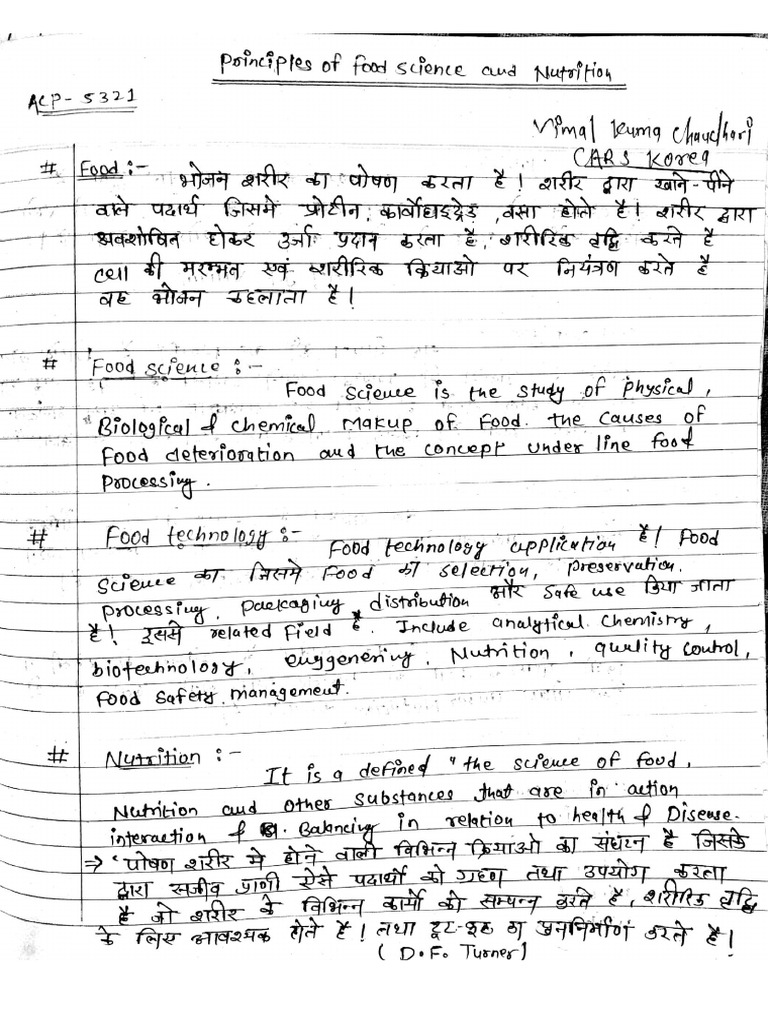 Principles of food science and Nutrition
ACP-5321
Vimal Kuma Chaudhari
CARS Korea
# Food :-
भोजन शरीर का पोषण करता है! शरीर द्वारा खाने-पीने
वाले पदार्थ जिसमे प्रोटीन, कार्वोहाइड्रेड, वसा होते है! शरीर द्वारा
अवशोषित होकर उर्जा प्रदान करता है, शरीरिक वृद्धि करते है
cell की मरम्मत एवं शारीरिक क्रियाओ पर नियंत्रण करते है
वह भोजन कहलाता है!
# Food science :-
Food science is the study of physical,
Biological & chemical makup of food. the causes of
food deterioration and the concept under line food
processing.
# Food technology :-
Food technology application है! Food
science का जिसमे Food की selection, preservation.
processing, packaging, distribution और safe use किया जाता
है! इससे related field है. Include analytical chemistry,
biotechnology, enggenering, Nutrition, quality control,
food safety management.
# Nutrition :-
It is a defined "the science of food,
Nutrition and other substances that are in action
interaction & Balancing in relation to health & Disease.
⇒ "पोषण शरीर मे होने वाली विभिन्न क्रियाओ का संघटन है जिसके
द्वारा सजीव प्राणी ऐसे पदार्थो को ग्रहण तथा उपयोग करता
है जो शरीर के विभिन्न कार्यो को सम्पन्न करते है, शरीरिक वृद्धि
के लिए आवश्यक होते है! तथा टूट-फूट का पुननिर्माण करते है!
(D.F. Turner)